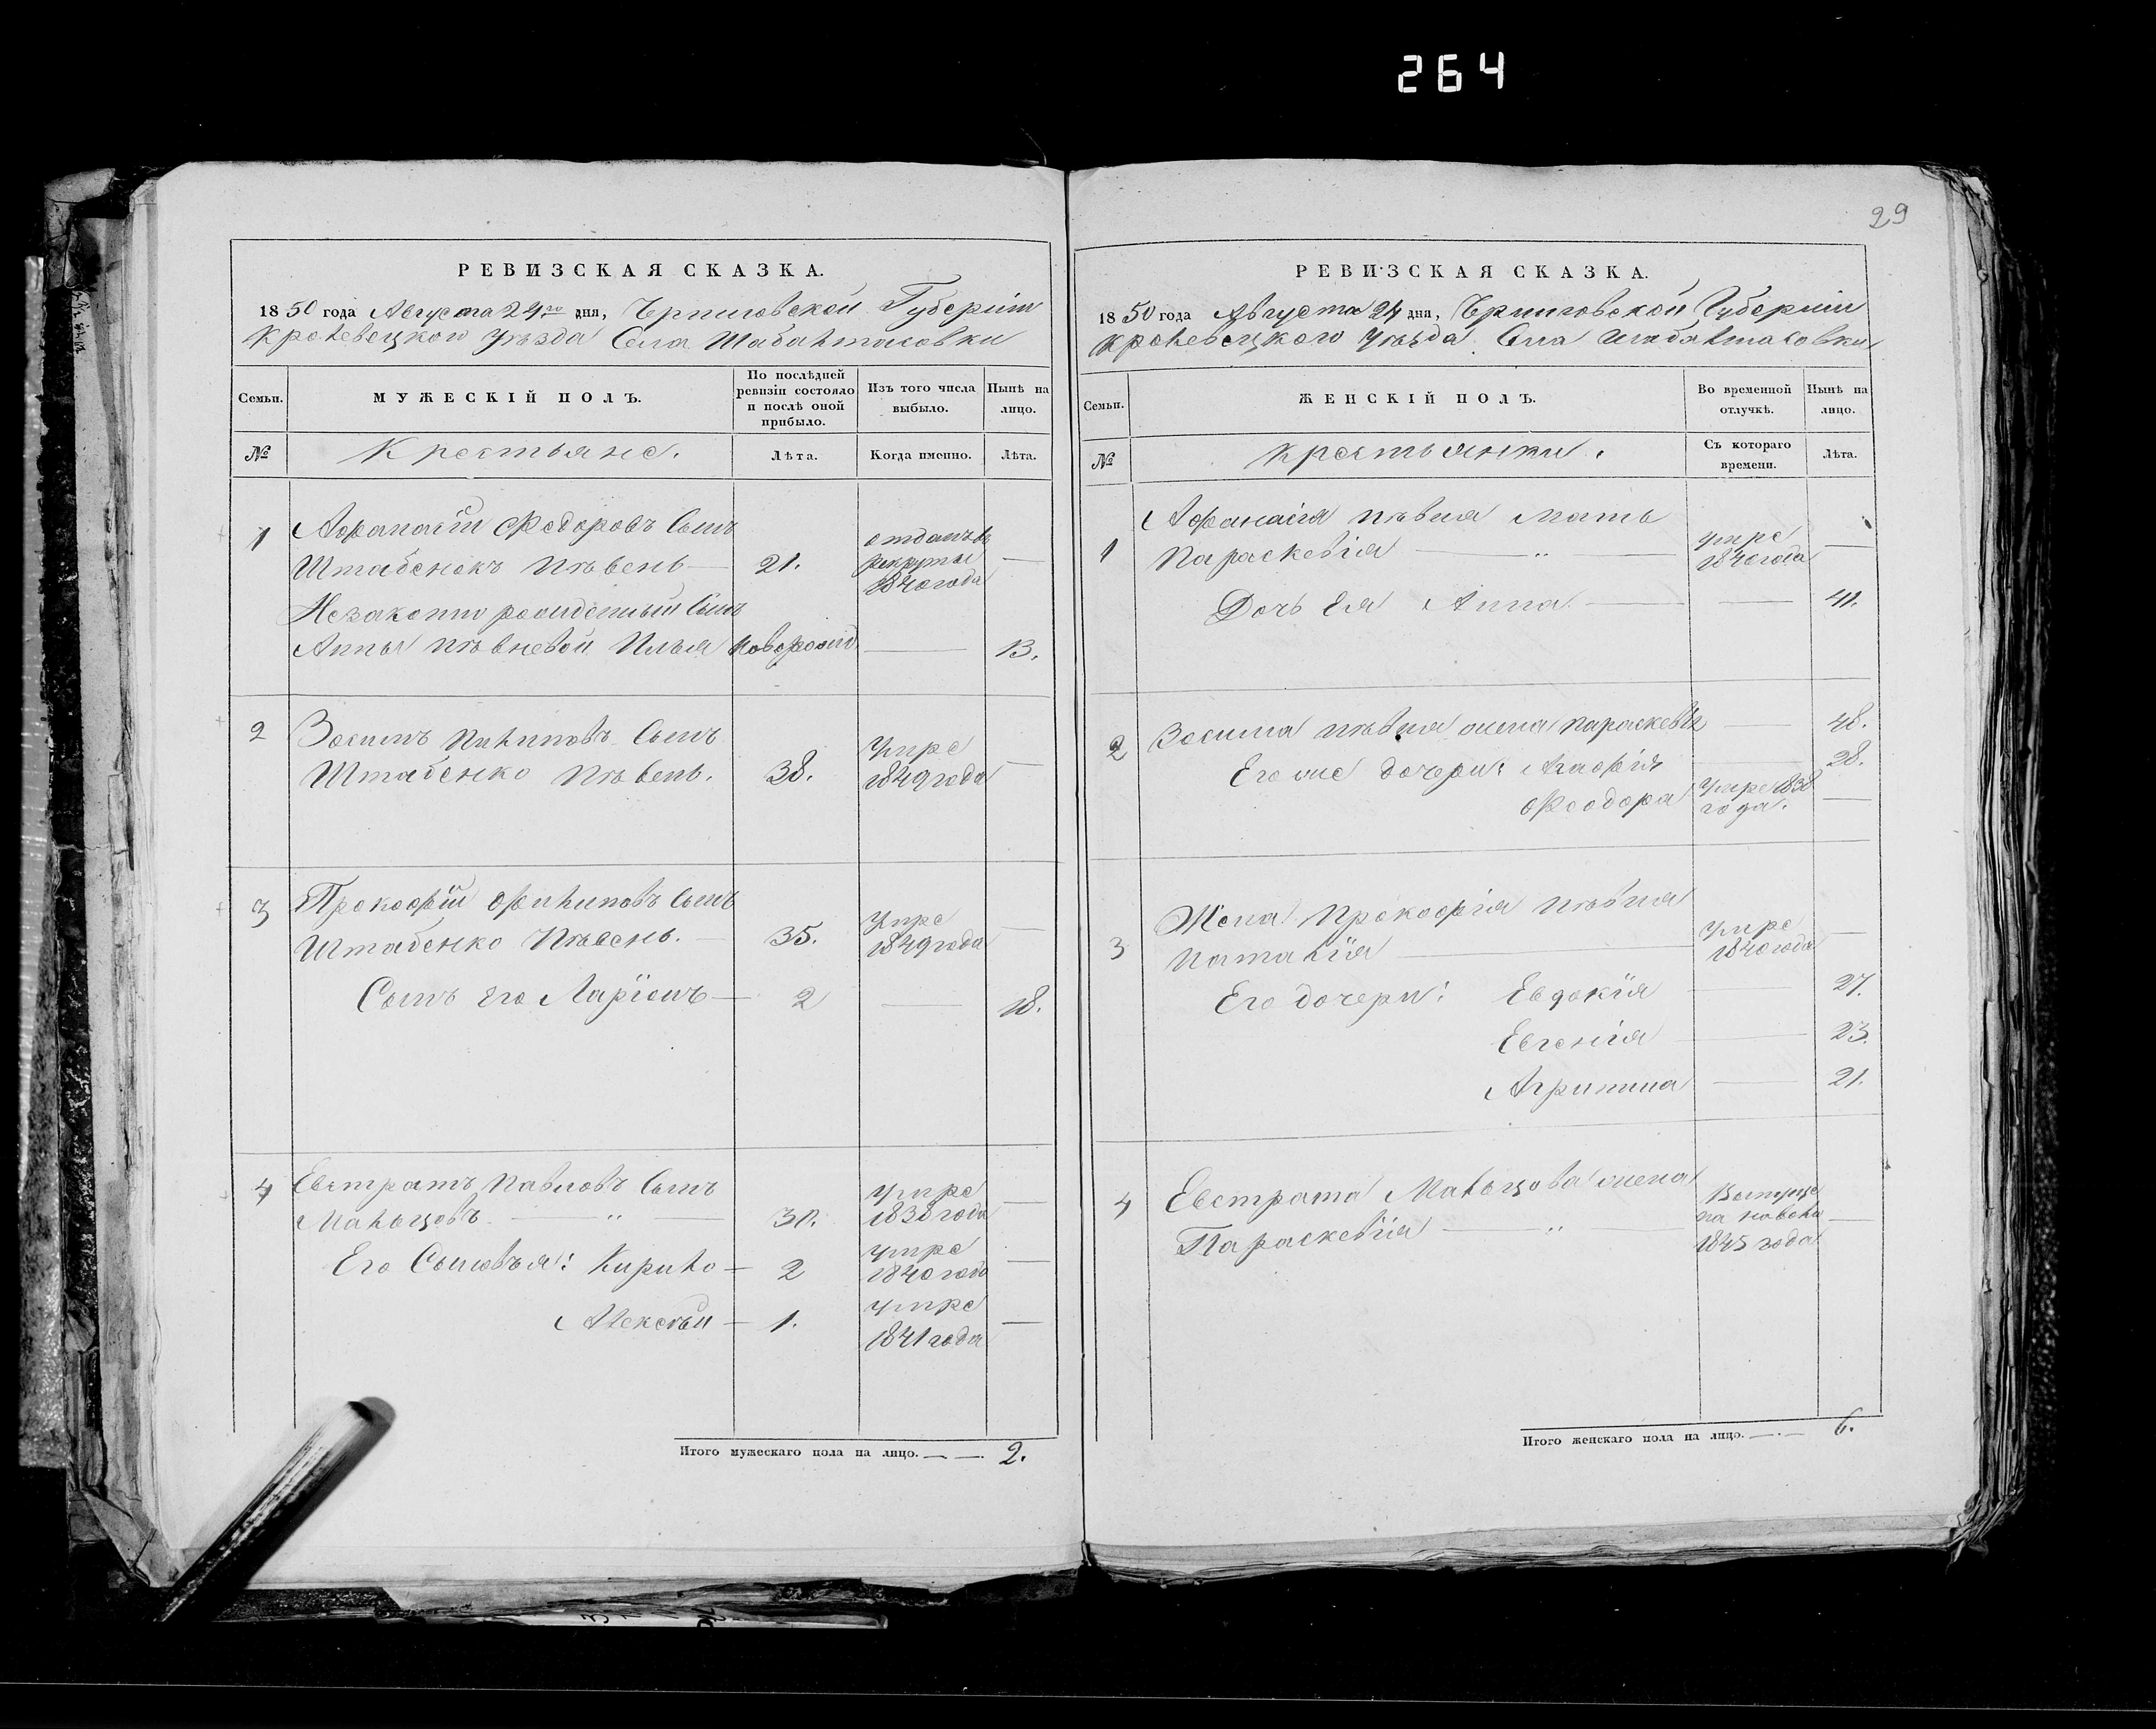 264
29
РЕВИЗСКАЯ СКАЗКА.
1850 года Августа 24го дня, Черниговской Губерніи
Кролевецкого уѣзда Села Шабалтасовки
Семьи.
МУЖЕСКІЙ ПОЛЪ.
По послѣдней ревизіи состояло и послѣ оной прибыло.
Изъ того числа выбыло.
Нынѣ на лицо.
№
Крестьяне.
Лѣта.
Когда именно.
Лѣта.
1
Афанасій Федоровъ Сынъ
Штабенокъ Пѣвень — 21.
отданъ въ рекруты 1840 года —
Незаконно рожденный Сынъ
Анны Пѣвневой Илья новорожд. — 13.
2
Зосимъ Сынъ
Штабенко Пѣвень. 38.
Умре 1849 года —
3
Прокофій Филиповъ Сынъ
Штабенко Пѣвень. — 35.
Умре 1849 года —
Сынъ Его Ларіонъ — 2 — 18.
4
Евстратъ Павловъ Сынъ
Мальцовъ — " — 30.
умре 1838 года —
Его Сыновья: Кирило — 2
умре 1840 года —
Алексѣй — 1.
умре 1841 года —
Итого мужескаго пола на лицо. — — 2.
РЕВИЗСКАЯ СКАЗКА.
1850 года Августа 24 дня, Черниговской Губерніи
Кролевецкого уѣзда Села Шабалтасовки
Семьи.
ЖЕНСКІЙ ПОЛЪ.
Во временной отлучкѣ.
Нынѣ на лицо.
№
Крестьянки.
Съ котораго времени.
Лѣта.
1
Афанасія Пѣвня мать
Параскевія — " —
умре 1840 года —
Дочь Ея Анна — — 41.
2
Зосима Пѣвня жена Параскевія — 48.
Его же дочери: Агафія — 28.
Феодора умре 1838 года. —
3
Жена Прокофія Пѣвня
Наталія —
умре 1840 года —
Его дочери: Евдокія — 27.
Евгенія — 23.
Агрипина — 21.
4
Евстрата Мальцова жена
Параскевія — " —
1845 года —
Итого женскаго пола на лицо. — . — 6.